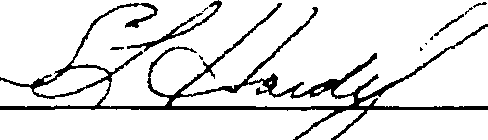 S L Hardy